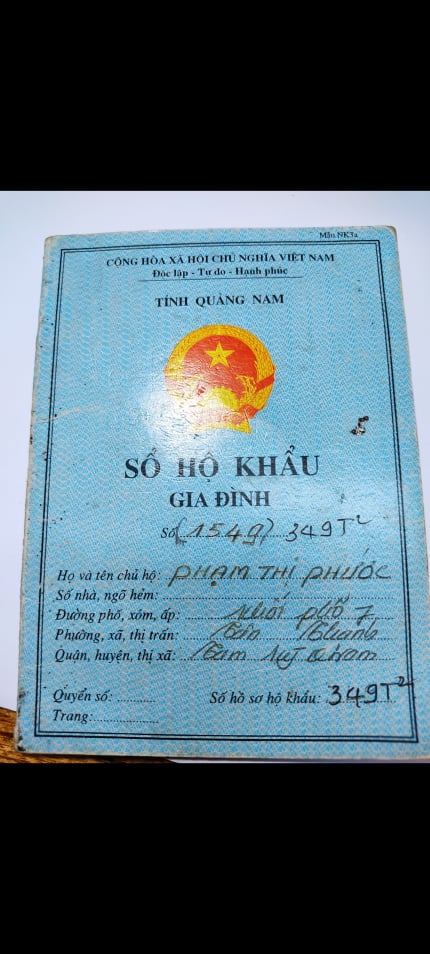 Mẫu NK3a
CỘNG HÒA XÃ HỘI CHỦ NGHĨA VIỆT NAM
Độc lập - Tự do - Hạnh phúc
TỈNH QUẢNG NAM
SỔ HỘ KHẨU
GIA ĐÌNH
Số (1549) 349T²
Họ và tên chủ hộ: PHẠM THỊ PHƯỚC
Số nhà, ngõ hẻm:
Đường phố, xóm, ấp: khối phố 7
Phường, xã, thị trấn:
Quận, huyện, thị xã: Tam
Quyển số:
Số hồ sơ hộ khẩu: 349T²
Trang: